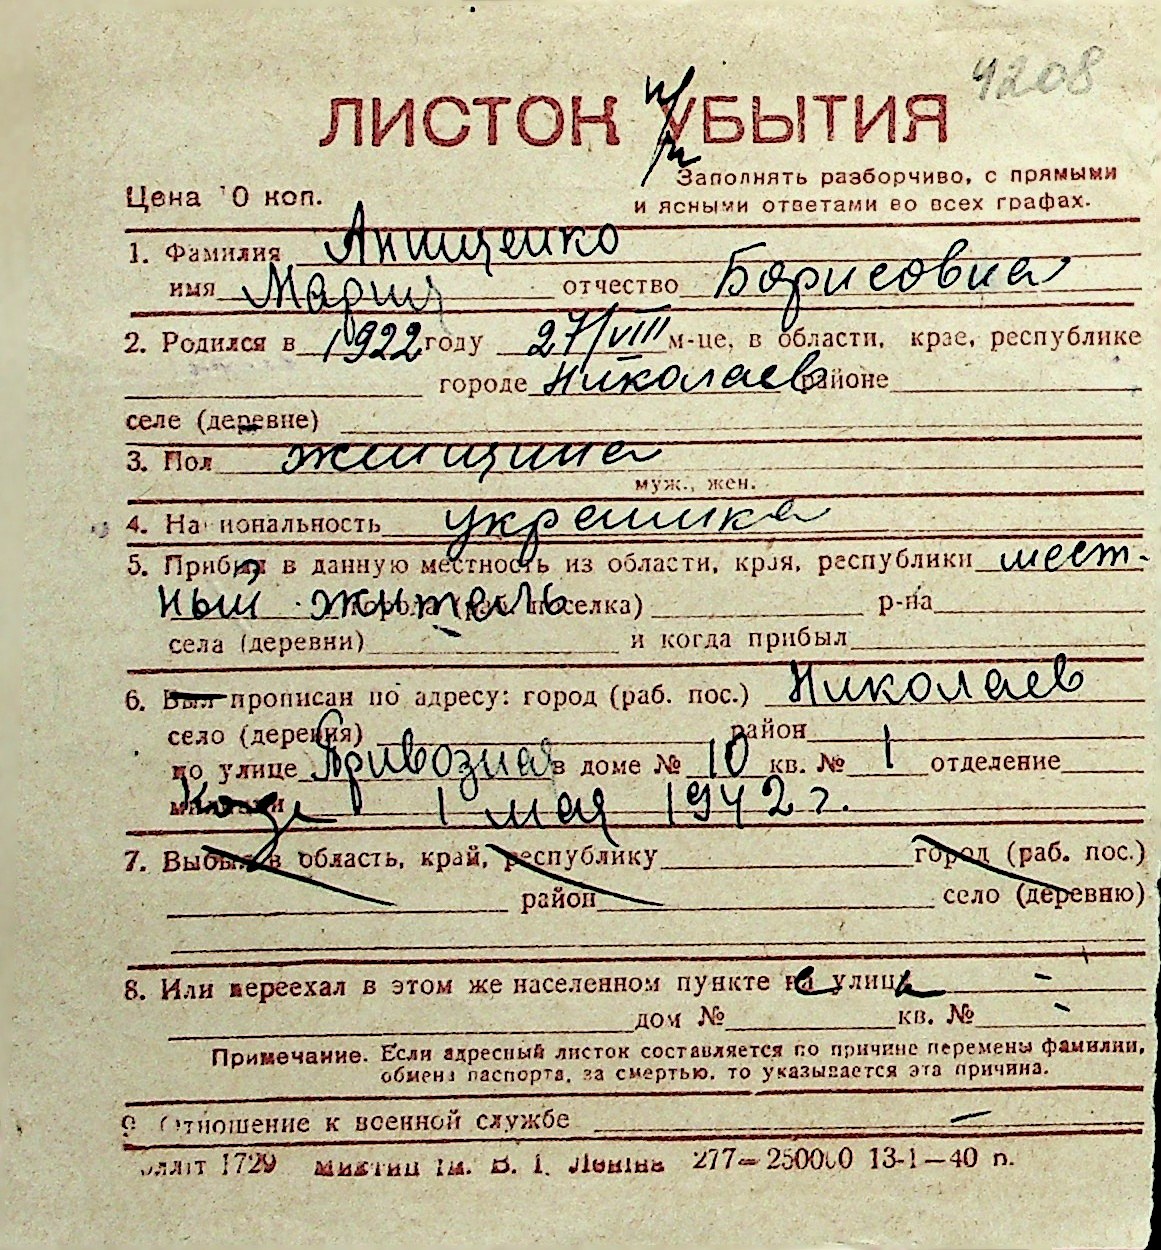 4208
ЛИСТОК УБЫТИЯ
при
Цена 10 коп.
Заполнять разборчиво, с прямыми
и ясными ответами во всех графах.
1. Фамилия Анищенко
имя Мария отчество Борисовна
2. Родился в 1922 году 27/VIII м-це, в области, крае, республике
городе Николаев районе
селе (деревне)
3. Пол женщина
муж., жен.
4. Национальность украинка
5. Прибыл в данную местность из области, края, республики мест-
ный житель города (раб. поселка) р-на
села (деревни) и когда прибыл
6. Был прописан по адресу: город (раб. пос.) Николаев
село (деревня) район
по улице Привозная в доме № 10 кв. № 1 отделение
милиции Когда 1 мая 1942 г.
7. Выбыл в область, край, республику город (раб. пос.)
район село (деревню)
8. Или переехал в этом же населенном пункте с улицы -
дом № кв. № -
Примечание. Если адресный листок составляется по причине перемены фамилии,
обмена паспорта, за смертью, то указывается эта причина.
9 Отношение к военной службе —
1729 ім. В. І. Леніна 277—250000 13-1—40 п.